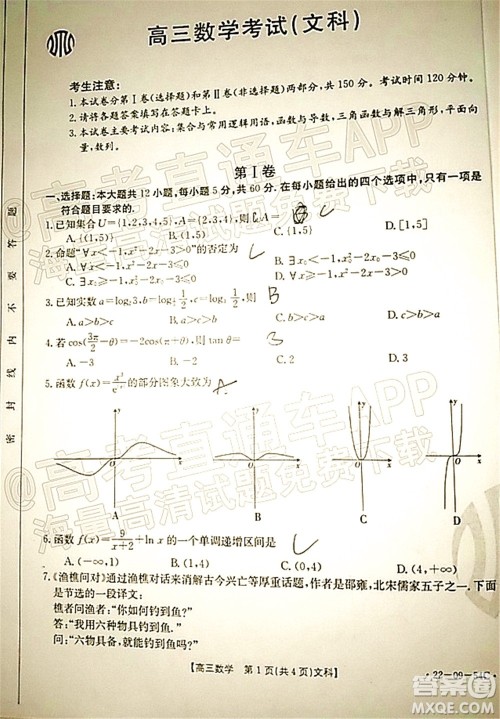 高三数学考试(文科)
考生注意:
1.本试卷分第Ⅰ卷(选择题)和第Ⅱ卷(非选择题)两部分,共150分。考试时间120分钟。
2.请将各题答案填写在答题卡上。
3.本试卷主要考试内容:集合与常用逻辑用语,函数与导数,三角函数与解三角形,平面向量,数列。
第Ⅰ卷
一、选择题:本大题共12小题,每小题5分,共60分.在每小题给出的四个选项中,只有一项是
符合题目要求的.
1.已知集合U={1,2,3,4,5},A={2,3,4},则∁UA= B
A.{(1,5)} B.{1,5} C.(1,5) D.[1,5]
2.命题“∀x>0,x²-2x-3>0”的否定为 C
A.∀x>0,x²-2x-3≤0
C.∃x>0,x²-2x-3≤0
3.已知实数a=log₂3,
则 B
A.a>b>c
D.c>b>a
4.若cos(3π/2-θ)=-2cos(π-θ),则tanθ= B
C.2 D.3
5.函数f(x)=
的部分图象大致为 A
y
O
x
y
O
x
y
O
x
y
O
x
A
B
C
D
6.函数f(x)=9/(x+2)+ln x的一个单调递增区间是 C
A.(-∞,1) B.(1,4) C.(0,4) D.(4,+∞)
7.《渔樵问对》通过渔樵对话来消解古今兴亡等厚重话题,作者是邵雍,北宋儒家五子之一.下面
是节选的一段译文:
樵者问渔者:“你如何钓到鱼?”
答:“我用六种物具钓到鱼”.
问:“六物具备,就能钓上鱼吗?”
【高三数学 第1页(共4页)文科】
·22-09-54C·
密 封 线 内 不 要 答 题
@高考直通车APP
海量高清试题免费下载
@高考直通车APP
海量高清试题免费下载
答案圈
MXQE.COM